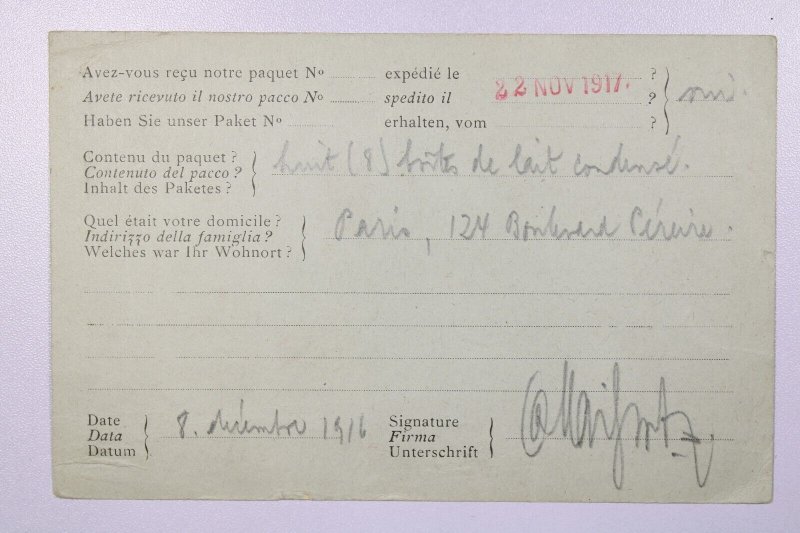 Avez-vous reçu notre paquet No ........ expédié le 22 NOV 1917. ?
Avete ricevuto il nostro pacco No ........ spedito il ?
Haben Sie unser Paket No ........ erhalten, vom ........ ?
oui.
Contenu du paquet ?
Contenuto del pacco ?
Inhalt des Paketes ?
huit (8) boîtes de lait condensé.
Quel était votre domicile ?
Indirizzo della famiglia ?
Welches war Ihr Wohnort ?
Paris, 124 Boulevard Péreire.
Date
Data
Datum
8. décembre 1916
Signature
Firma
Unterschrift